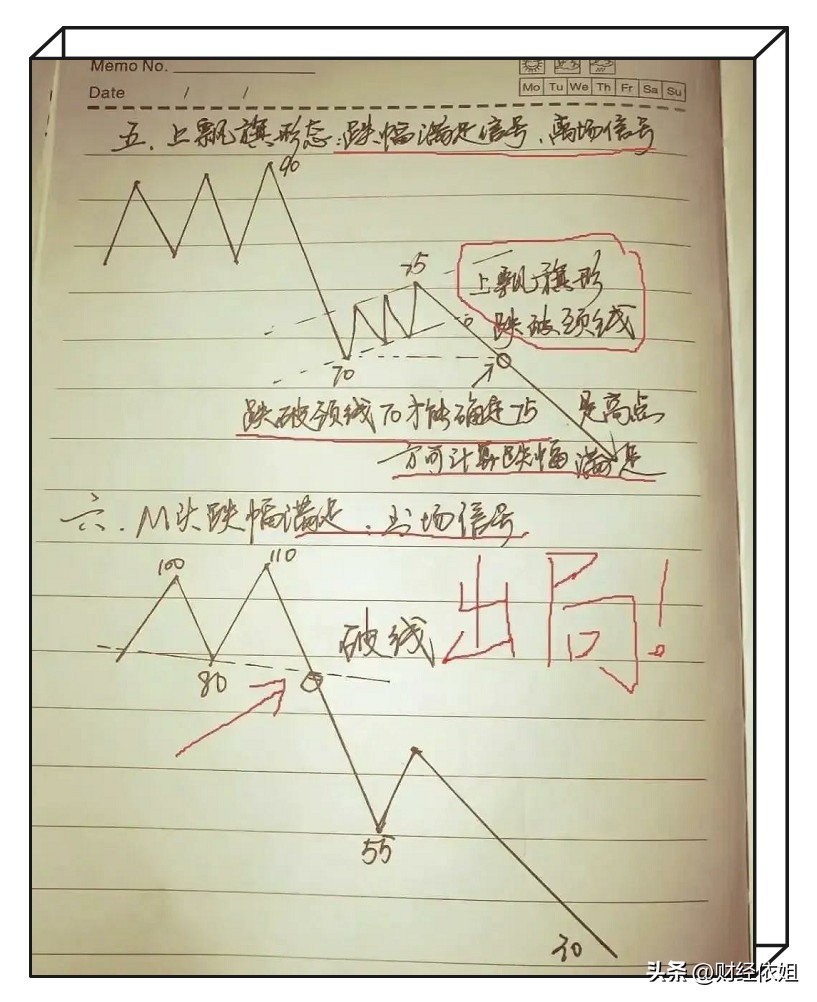 Memo No.
Mo Tu We Th Fr Sa Su
Date / /
五、上飘旗形态:跌幅满足信号、离场信号
90
75
上飘旗形
跌破颈线
70
跌破颈线70才能确定75 是高点
方可计算跌幅满足
六、M头跌幅满足、出场信号
100
110
破线出局!
80
55
30
头条 @财经依姐